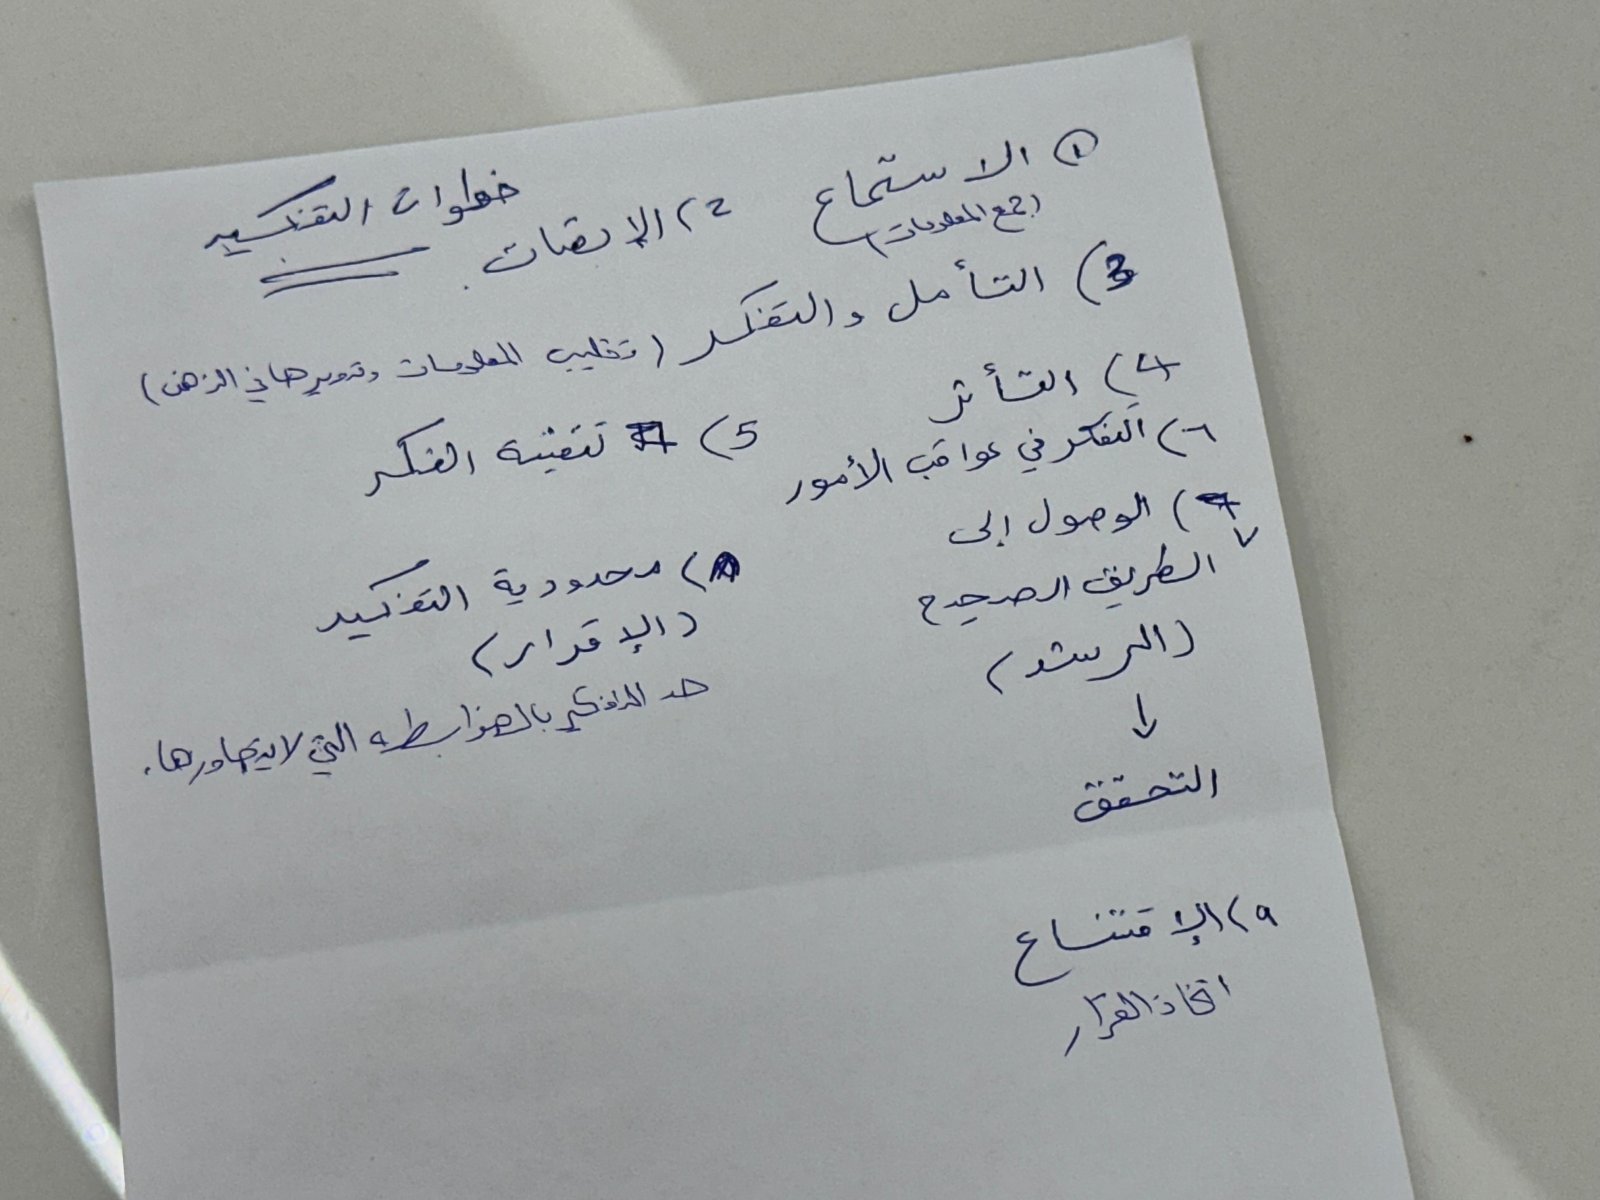 خطوات التفكير
① الاستماع
(جمع المعلومات)
2) الإنصات.
3) التأمل والتفكر (تقليب المعلومات وتدويرها في الذهن)
4) التأثر
5) تنقية الفكر
٦) التفكر في عواقب الأمور
٧) الوصول إلى
الطريق الصحيح
(الرشد)
↓
التحقق
٨) محدودية التفكير
(الإقرار)
حد التفكير بالضوابط التي لا يتجاوزها.
٩) الإقتناع
اتخاذ القرار